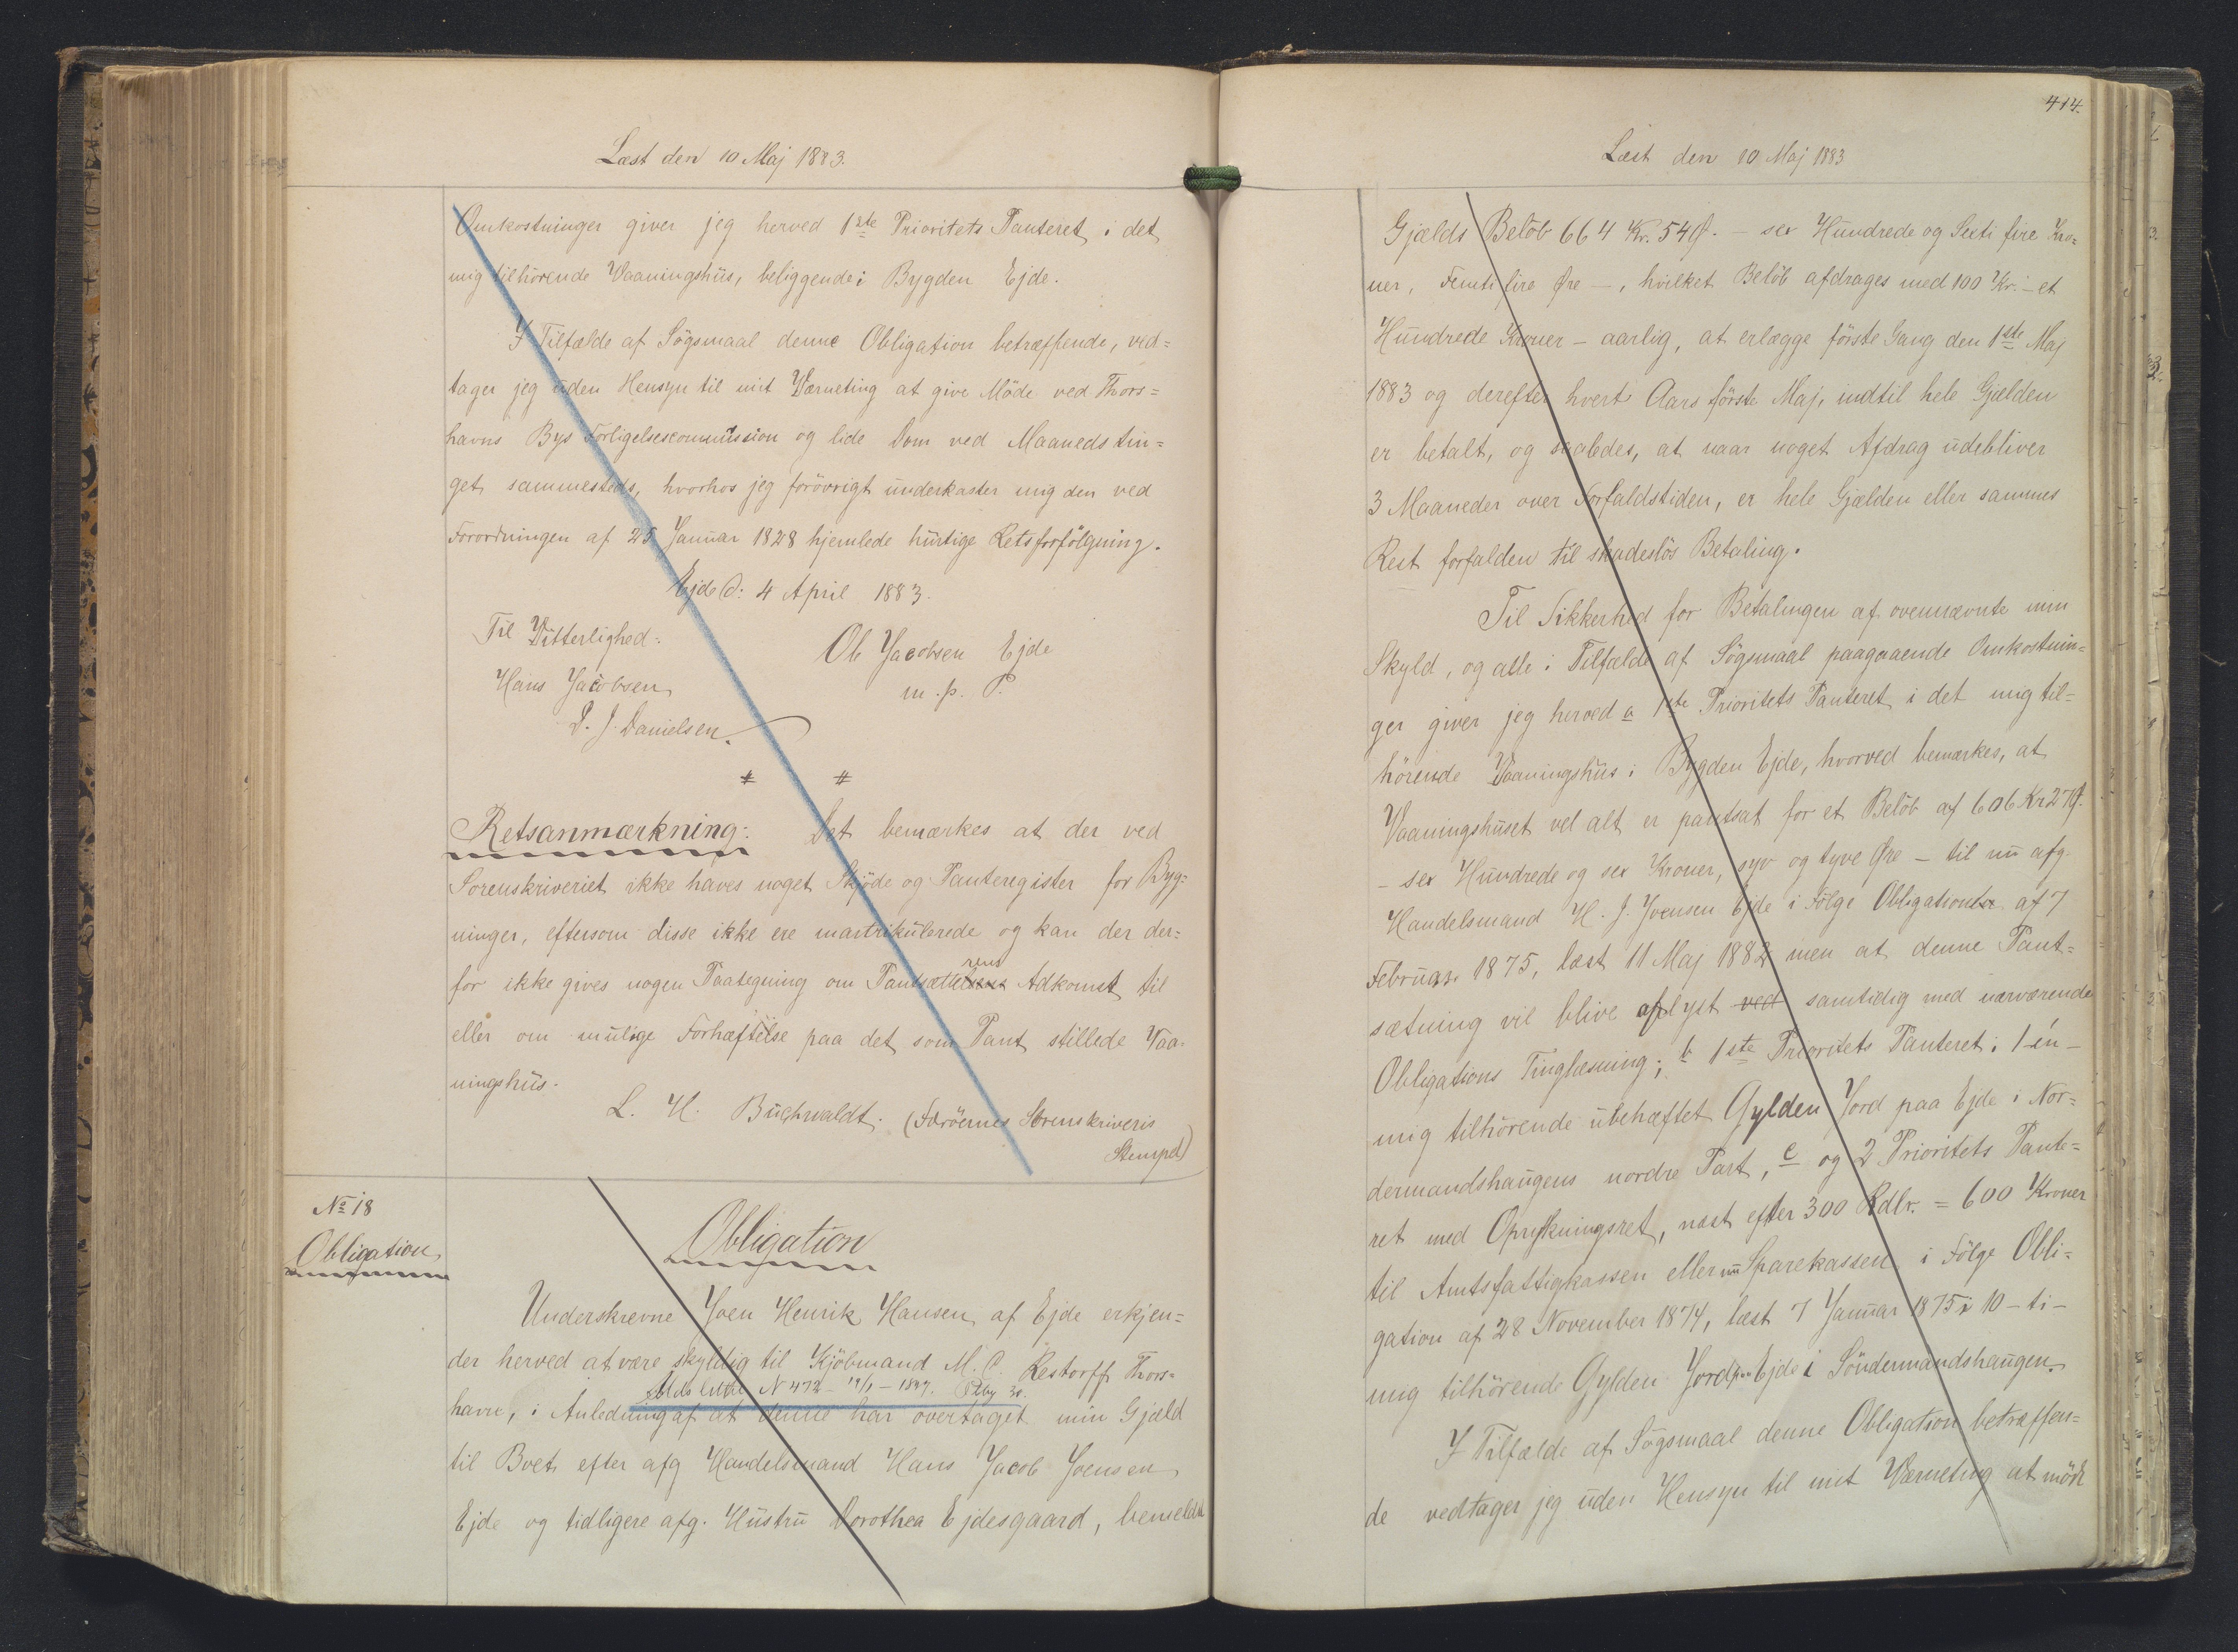 Læst den 10 Maj 1883.
Omkostninger giver jeg herved 1ste Prioritets Panteret i det
mig tilhörende Vaaningshus, beliggende i Bygden Ejde.
I Tilfælde af Sögsmaal denne Obligation betræffende, ved=
tager jeg uden Hensyn til mit Værneting at give Möde ved Thors=
havns Bys Forligelsescommission og lide Dom ved Maanedstin=
get sammesteds, hvorhos jeg forövrigt underkaster mig den ved
Forordningen af 25 Januar 1828 hjemlede hurtige Retsforfölgning.
Ejde d: 4 April 1883.
Til Vitterlighed:
Ole Jacobsen Ejde
Hans Jacobsen
m. p. P.
D. J. Danielsen.
Retsanmærkning: Det bemærkes at der ved
Sorenskriveriet ikke haves noget Skjöde og Panteregister for Byg=
ninger, eftersom disse ikke ere martrikulerede og kan der der=
for ikke gives nogen Paategning om Pantsætterens Adkomst til
eller om mulige Forhæftelse paa det som Pant stillede Vaa=
ningshus.
L. H. Buchwaldt. (Færöernes Sorenskriveris
Stempel)
No 18
Obligation
Obligation
Underskrevne Joen Henrik Hansen af Ejde erkjen=
der herved at være skyldig til Kjöbmand M. C. Restorff Thors=
N 472 - 19/1 - 1897.
havn, i Anledning af at denne har overtaget min Gjæld
til Boet efter afg Handelsmand Hans Jacob Joensen
Ejde og tidligere afg. Hustru Dorothea Ejdesgaard, bemeldte
414.
Læst den 10 Maj 1883
Gjælds Belöb 664 Kr. 54 Ø. - sex Hundrede og Sexti fire Kro=
ner, Femti fire Øre -, hvilket Belöb afdrages med 100 Kr. - et
Hundrede Kroner - aarlig, at erlægge förste Gang den 1ste Maj
1883 og derefter hvert Aars förste Maj, indtil hele Gjælden
er betalt, og saaledes, at naar noget Afdrag udebliver
3 Maaneder over Forfaldstiden, er hele Gjælden eller sammes
Rest forfalden til skadeslös Betaling.
Til Sikkerhed for Betalingen af ovennævnte min
Skyld, og alle i Tilfælde af Sögsmaal paagaaende Omkostnin=
ger giver jeg herved a 1ste Prioritets Panteret i det mig til=
hörende Vaaningshus i Bygden Ejde, hvorved bemærkes, at
Vaaningshuset vel alt er pantsat for et Belöb af 606 Kr 27 Ø.
- sex Hundrede og sex Kroner, syv og tyve Øre - til nu afg.
Handelsmand H. J. Joensen Ejde i Fölge Obligation af 7
Februar 1875, læst 11 Maj 1882 men at denne Pant=
sætning vil blive aflyst ved samtidig med nærværende
Obligations Tinglæsning; b 1ste Prioritets Panteret i 1 - én -
mig tilhörende ubehæftet Gylden Jord paa Ejde i Nor=
dermandshaugens nordre Part, c og 2 Prioritets Pante=
ret med Oprykningsret, næst efter 300 Rdlr. = 600 Kroner
til Amtsfattigkassen eller nu Sparekassen i Fölge Obli=
gation af 28 November 1874, læst 7 Januar 1875 i 10 - ti -
mig tilhörende Gylden Jord paa Ejde i Söndermandshaugen.
I Tilfælde af Sögsmaal denne Obligation betræffen=
de vedtager jeg uden Hensyn til mit Værneting at möde